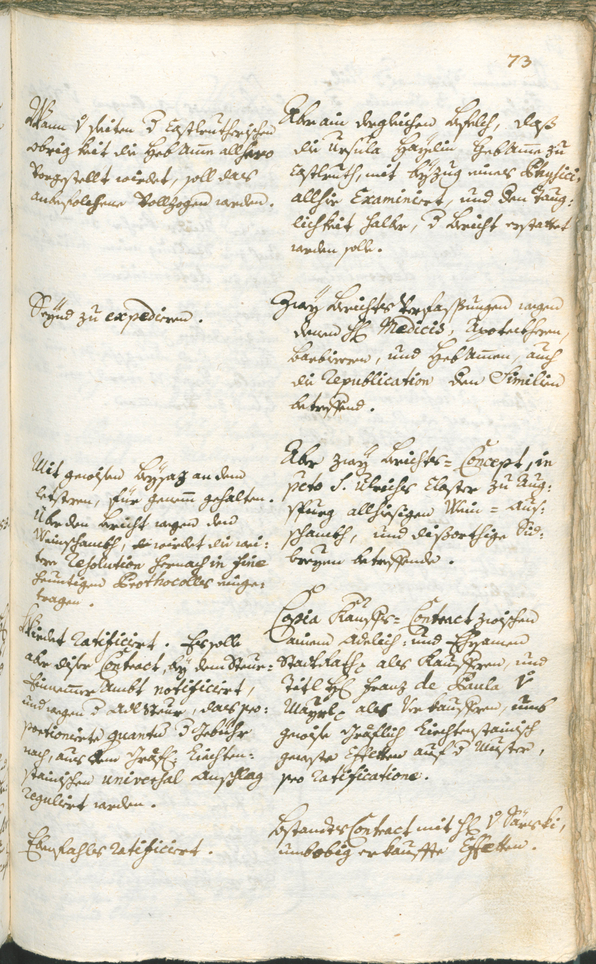 73
Wann v seiten d Castlruthischen
obrigkeit die Heb Amme allhero
vorgestellt wirdet, soll das
anbefolchene vollzogen werden.
Aber ain dergleichen befelch, dass
die Ursula Haÿslin Heb Amme zu
Castlruth, mit beÿzug eines Physici,
allhir Examiniert, und den taug-
lichkeit halber, d bericht erstattet
werden solle.
Seÿnd zu expedieren.
Zwaÿ berichts verfassungen wegen
denen H. Medicis, Apoteckhern,
Barbierern, und Heb Ammen, auch
die Republication den Similien
betreffend.
Mit gewisen beÿsaz an dem
letstern, für genemm gehalten.
Über den bericht wegen den
Weinschanckh, wirdet die wei-
tere Resolution hernach in fine
heuntigen Prothocolls einge-
tragen.
Aber zwaÿ berichts-Concept, in
pcto S. Ulrichs Closter zu Aug-
spurg allhiesigen Wein-Auss-
schanckh, und dessorthige
betreffende.
Wirdet ratificiert. Es solle
aber diser Contract, beÿ dem Steur-
Einnemmer Ambt notificiert,
und wegen d Adl Steur, das pro-
portionierte quantum d gebühr
nach, aus dem Gräfl: Liechten-
stainischen universal Anschlag
reguliert werden.
Copia Kauffs-Contract zwischen
ainem Adelich- und Ersamen
Stattrath als Kauffern, und
Titl H. Franz de Paula v
Maÿrl als Verkauffern, umb
gewise Gräflich Liechtenstainisch
geweste Effecten auf d Mustern,
pro ratificatione.
Ebenfahls ratificiert.
Bstandts Contract mit H. v
umb obig erkauffte Effecten.